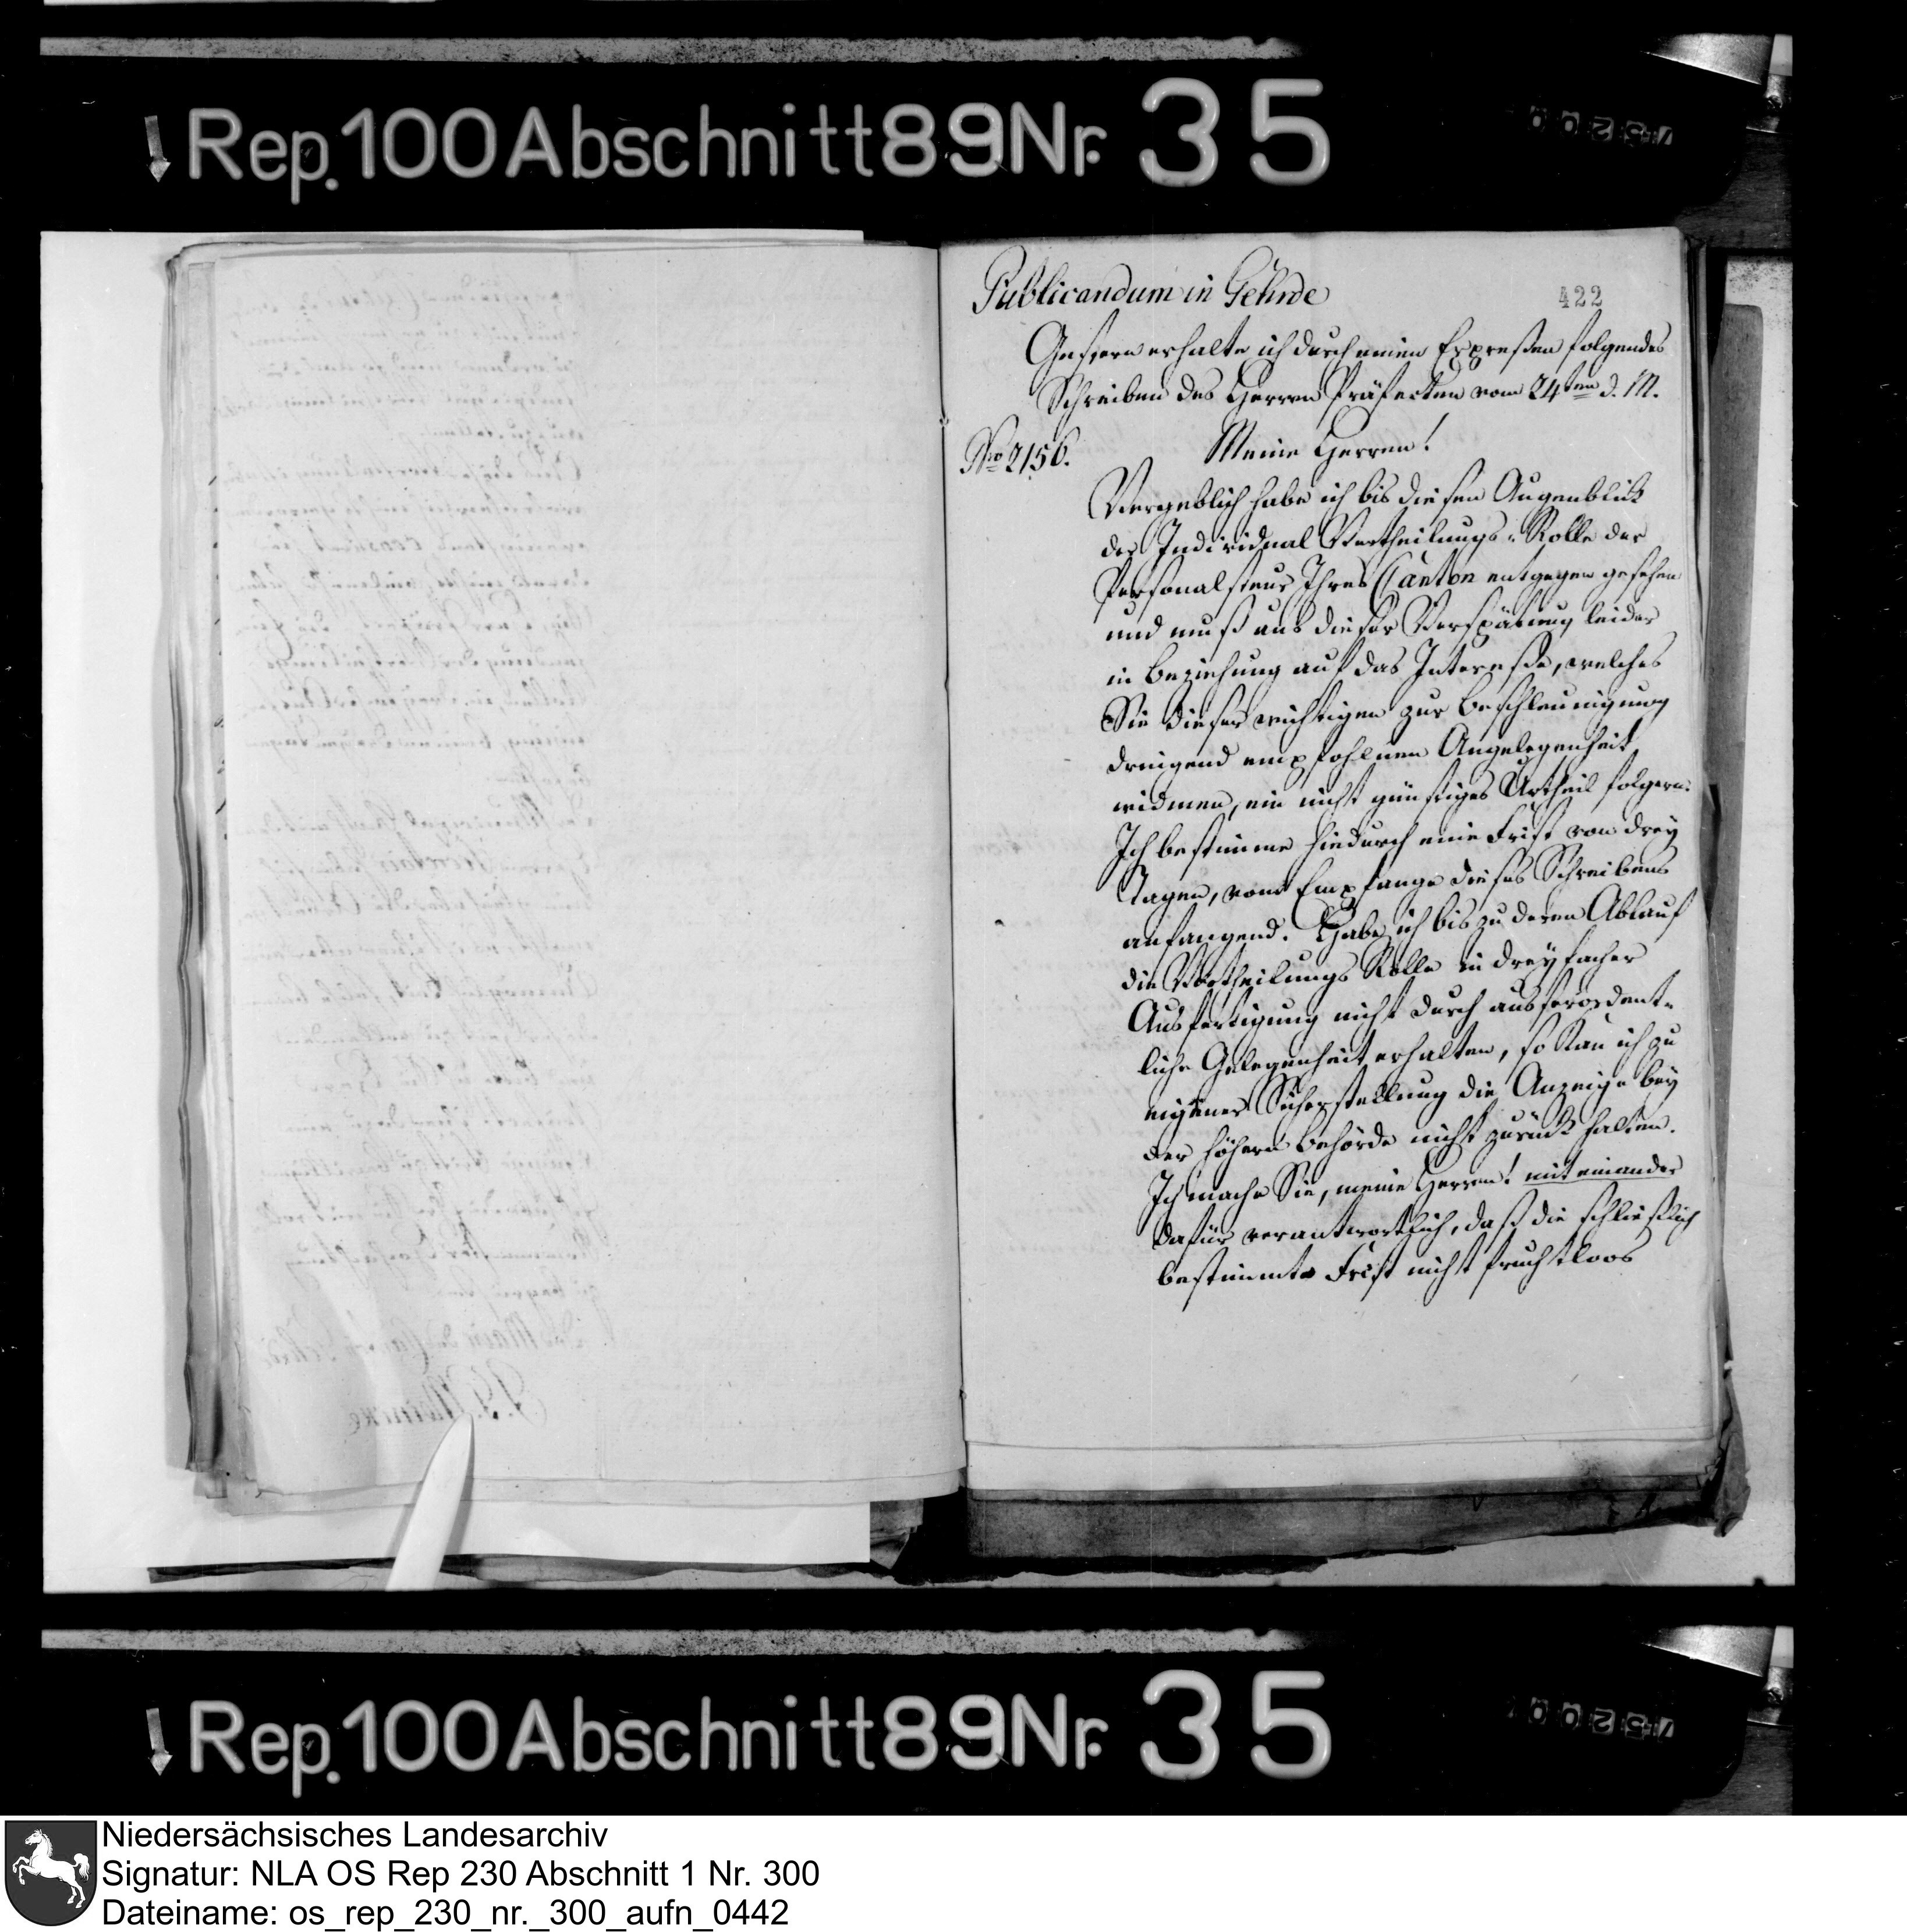 Rep. 100 Abschnitt 89 Nr. 35
Publicandum in Gehrde
422
Gestern erhalte ich durch einen Expreßen folgendes
Schreiben des Herren Präfecten vom 24ten d. M.
No 2156.
Meine Herren!
Vergeblich habe ich bis diesen Augenblick
der Individual Vertheilungs-Rolle der
Personalsteur Ihres Canton entgegen gesehen
und muß aus dieser Verspätung leider
in Beziehung auf das Interesse, welches
Sie dieser wichtigen zur Beschleunigung
dringend empfohlnen Angelegenheit
widmen, ein nicht günstiges Urtheil folgern.
Ich bestimme hiedurch eine Frist von drey
Tagen, vom Empfange dieses Schreibens
anfangend. Habe ich bis zu deren Ablauf
die Vertheilungs Rolle in dreyfacher
Ausfertigung nicht durch ausserordent-
liche Gelegenheit erhalten, so kan ich zu
eigener Sicherstellung die Anzeige bey
der höhern Behörde nicht zurück halten.
Ich mache Sie, meine Herren! mit einander
dafür verantwortlich, daß die schließlich
bestimmte Frist nicht fruchtloos
Rep. 100 Abschnitt 89 Nr. 35
Niedersächsisches Landesarchiv
Signatur: NLA OS Rep 230 Abschnitt 1 Nr. 300
Dateiname: os_rep_230_nr._300_aufn_0442